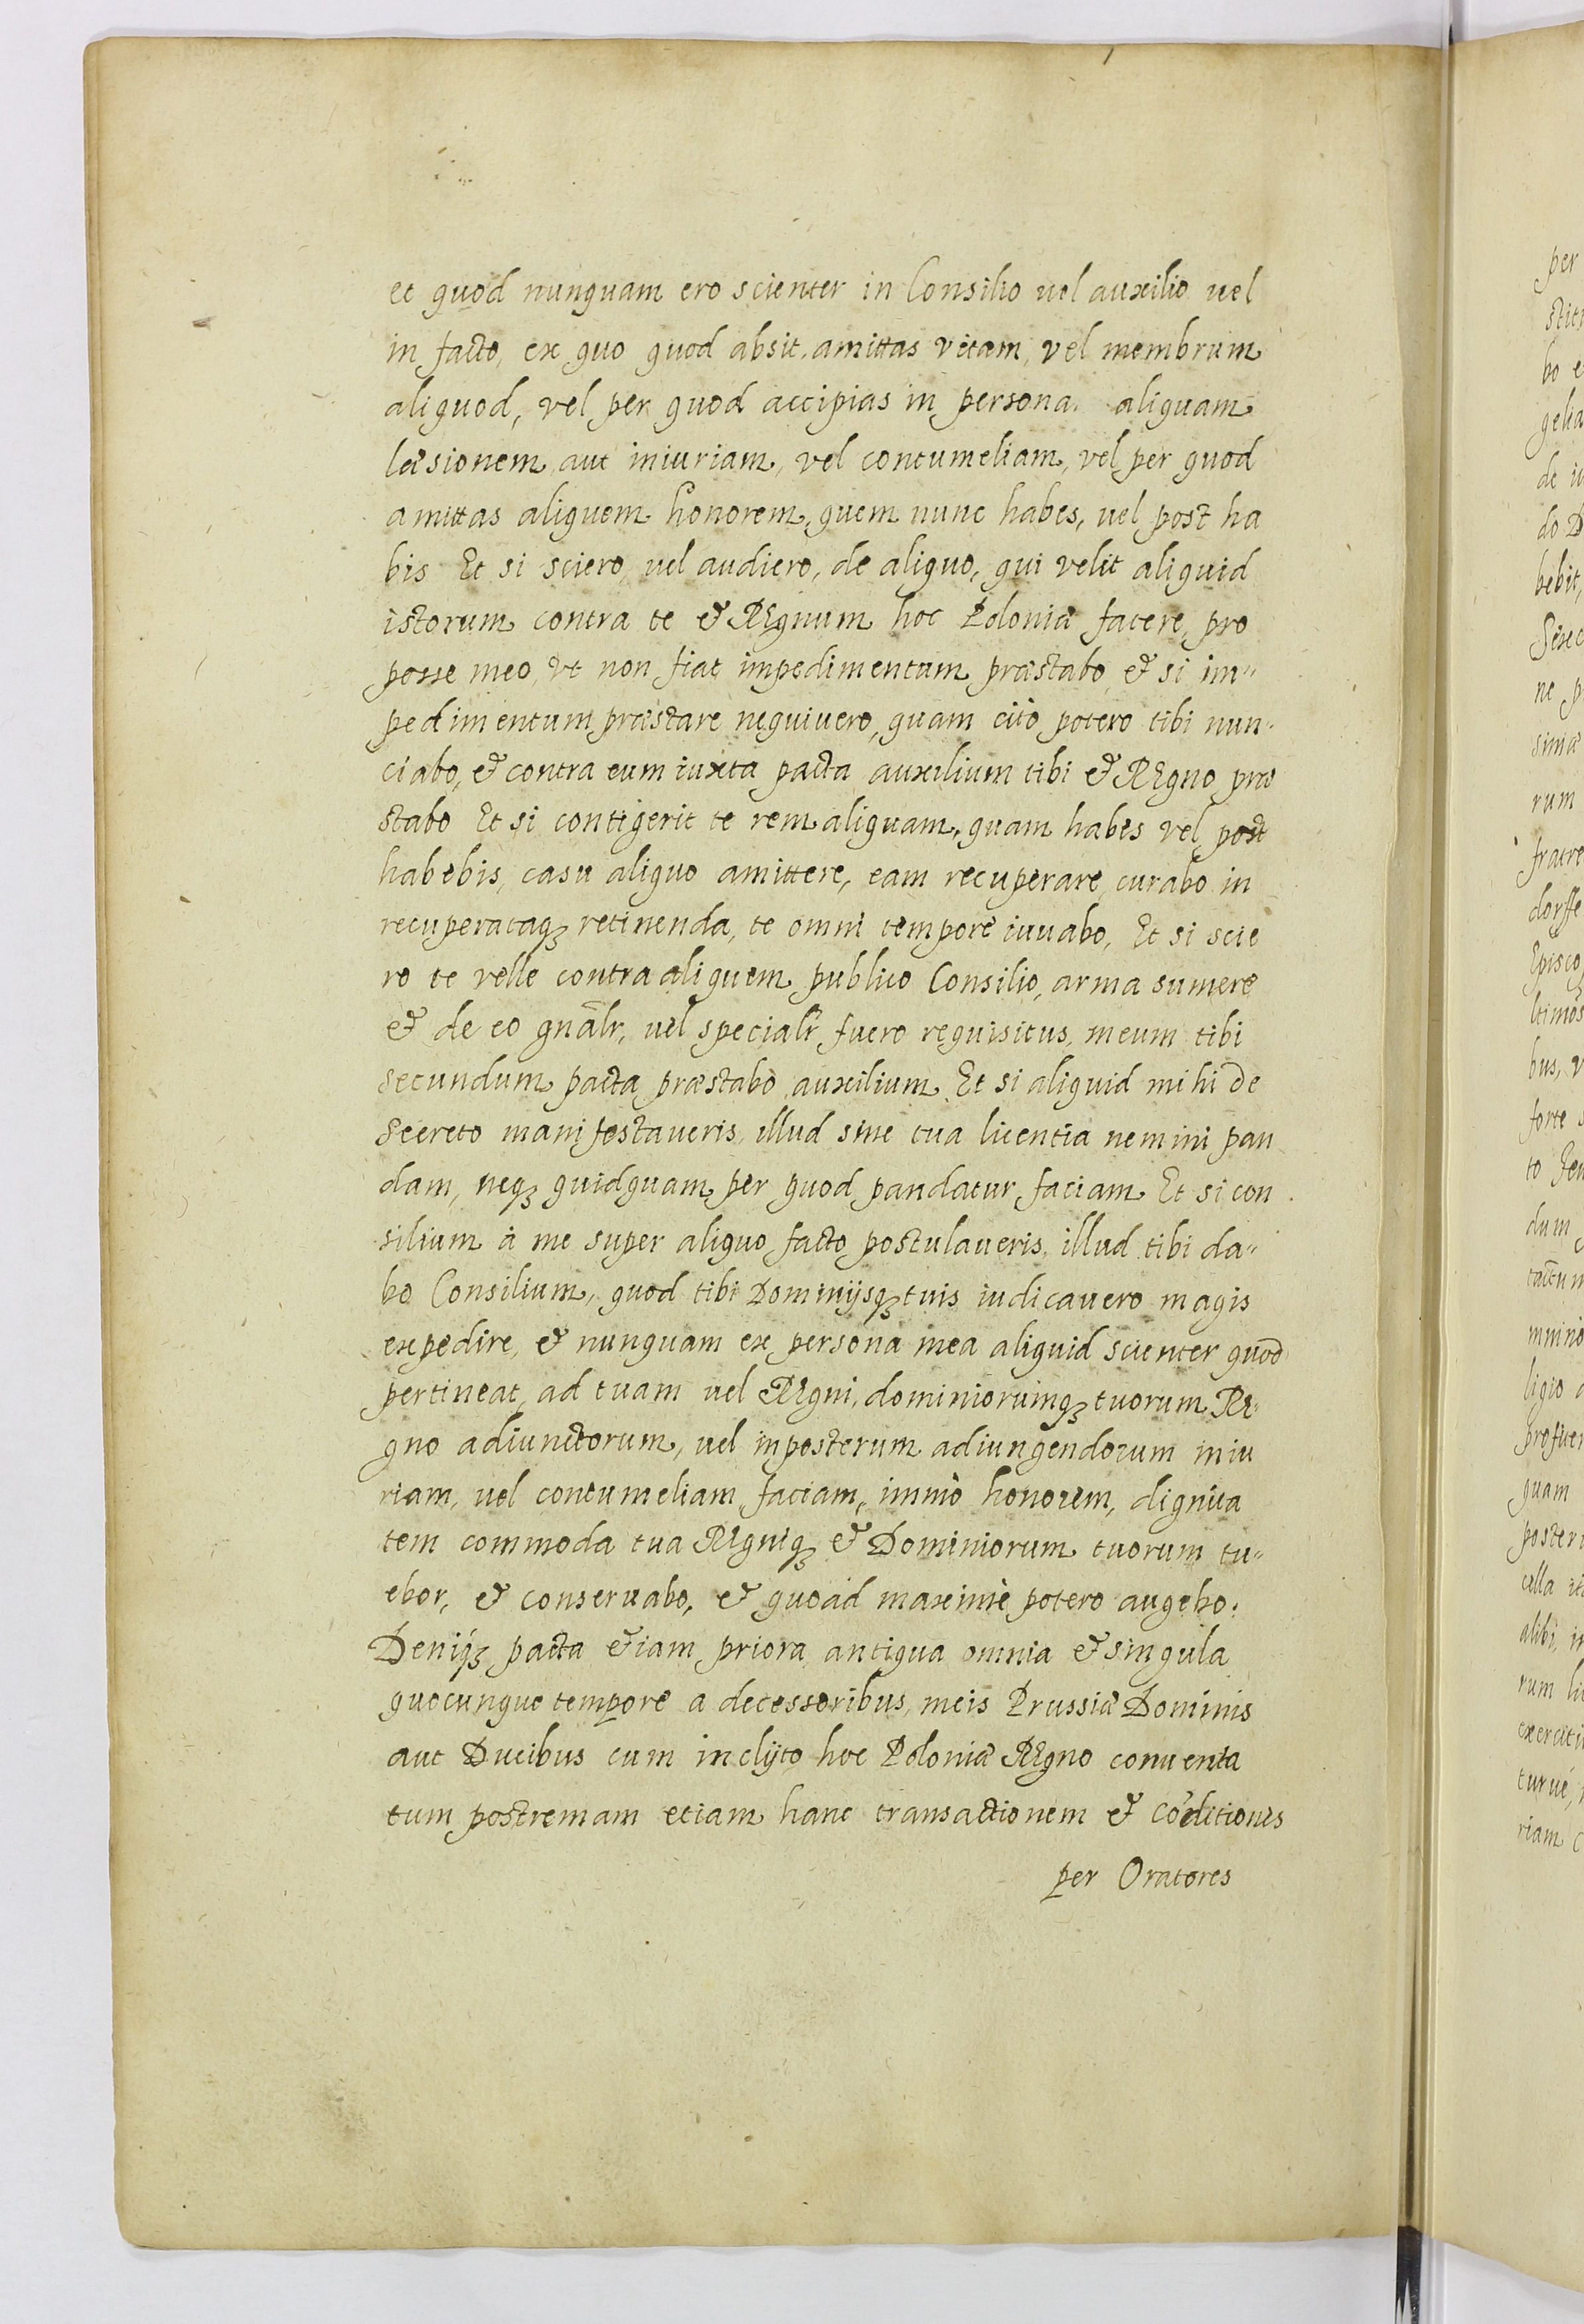 et quod nunquam ero scienter in Consilio uel auxilio uel
in facto, ex quo quod absit, amittas vitam, vel membrum
aliquod, vel per quod accipias in persona. aliquam
læsionem aut iniuriam, vel contumeliam, vel per quod
amittas aliquem honorem, quem nunc habes, uel post ha
bis Et si sciero, uel audiero, de aliquo, qui velit aliquid
istorum contra te & REgnum hoc Poloniæ facere, pro
posse meo, vt non fiat impedimentum præstabo, & si im-
pedimentum præstare nequiuero, quam citò potero tibi nun-
ciabo, & contra eum iuxta pacta auxilium tibi & REgno præ
stabo Et si contigerit te rem aliquam, quam habes vel post
habebis, casu aliquo amittere, eam recuperare, curabo in
recuperataqꝫ retinenda, te omni tempore iuuabo, Et si scie
ro te velle contra aliquem publico Consilio, arma sumere
& de eo gnãlr, uel specialr fuero requisitus, meum tibi
secundum pacta præstabo auxilium Et si aliquid mihi de
Secreto manifestaueris, illud sine tua licentia nemini pan
dam, neqꝫ quidquam per quod pandatur faciam Et si con
silium à me super aliquo facto postulaueris, illud tibi da-
bo Consilium, quod tibi Dominijsqꝫ tuis iudicauero magis
expedire, & nunquam ex persona mea aliquid scienter quod
pertineat, ad tuam uel REgni, dominiorumqꝫ tuorum RE-
gno adiunctorum, uel inposterum adiungendorum iniu
riam, uel contumeliam faciam, immò honorem, dignita
tem commoda tua REgniqꝫ & Dominiorum tuorum tu-
ebor, & conseruabo, & quoad maximè potero augebo.
Deniqꝫ pacta & iam priora antiqua omnia & singula
quocunque tempore a decessoribus, meis Prussiæ Dominis
aut Ducibus cum inclyto hoc Poloniæ REgno conuenta
tum postremam etiam hanc transactionem & cõditiones
per Oratores
per
bo e
de iu
do D
bebit,
ne p
simæ
rum
fratre
dorffe
Episco
ltimos
bus, v
forte s
dum
ligio
quam
cella
alibi, in
rum li
riam c